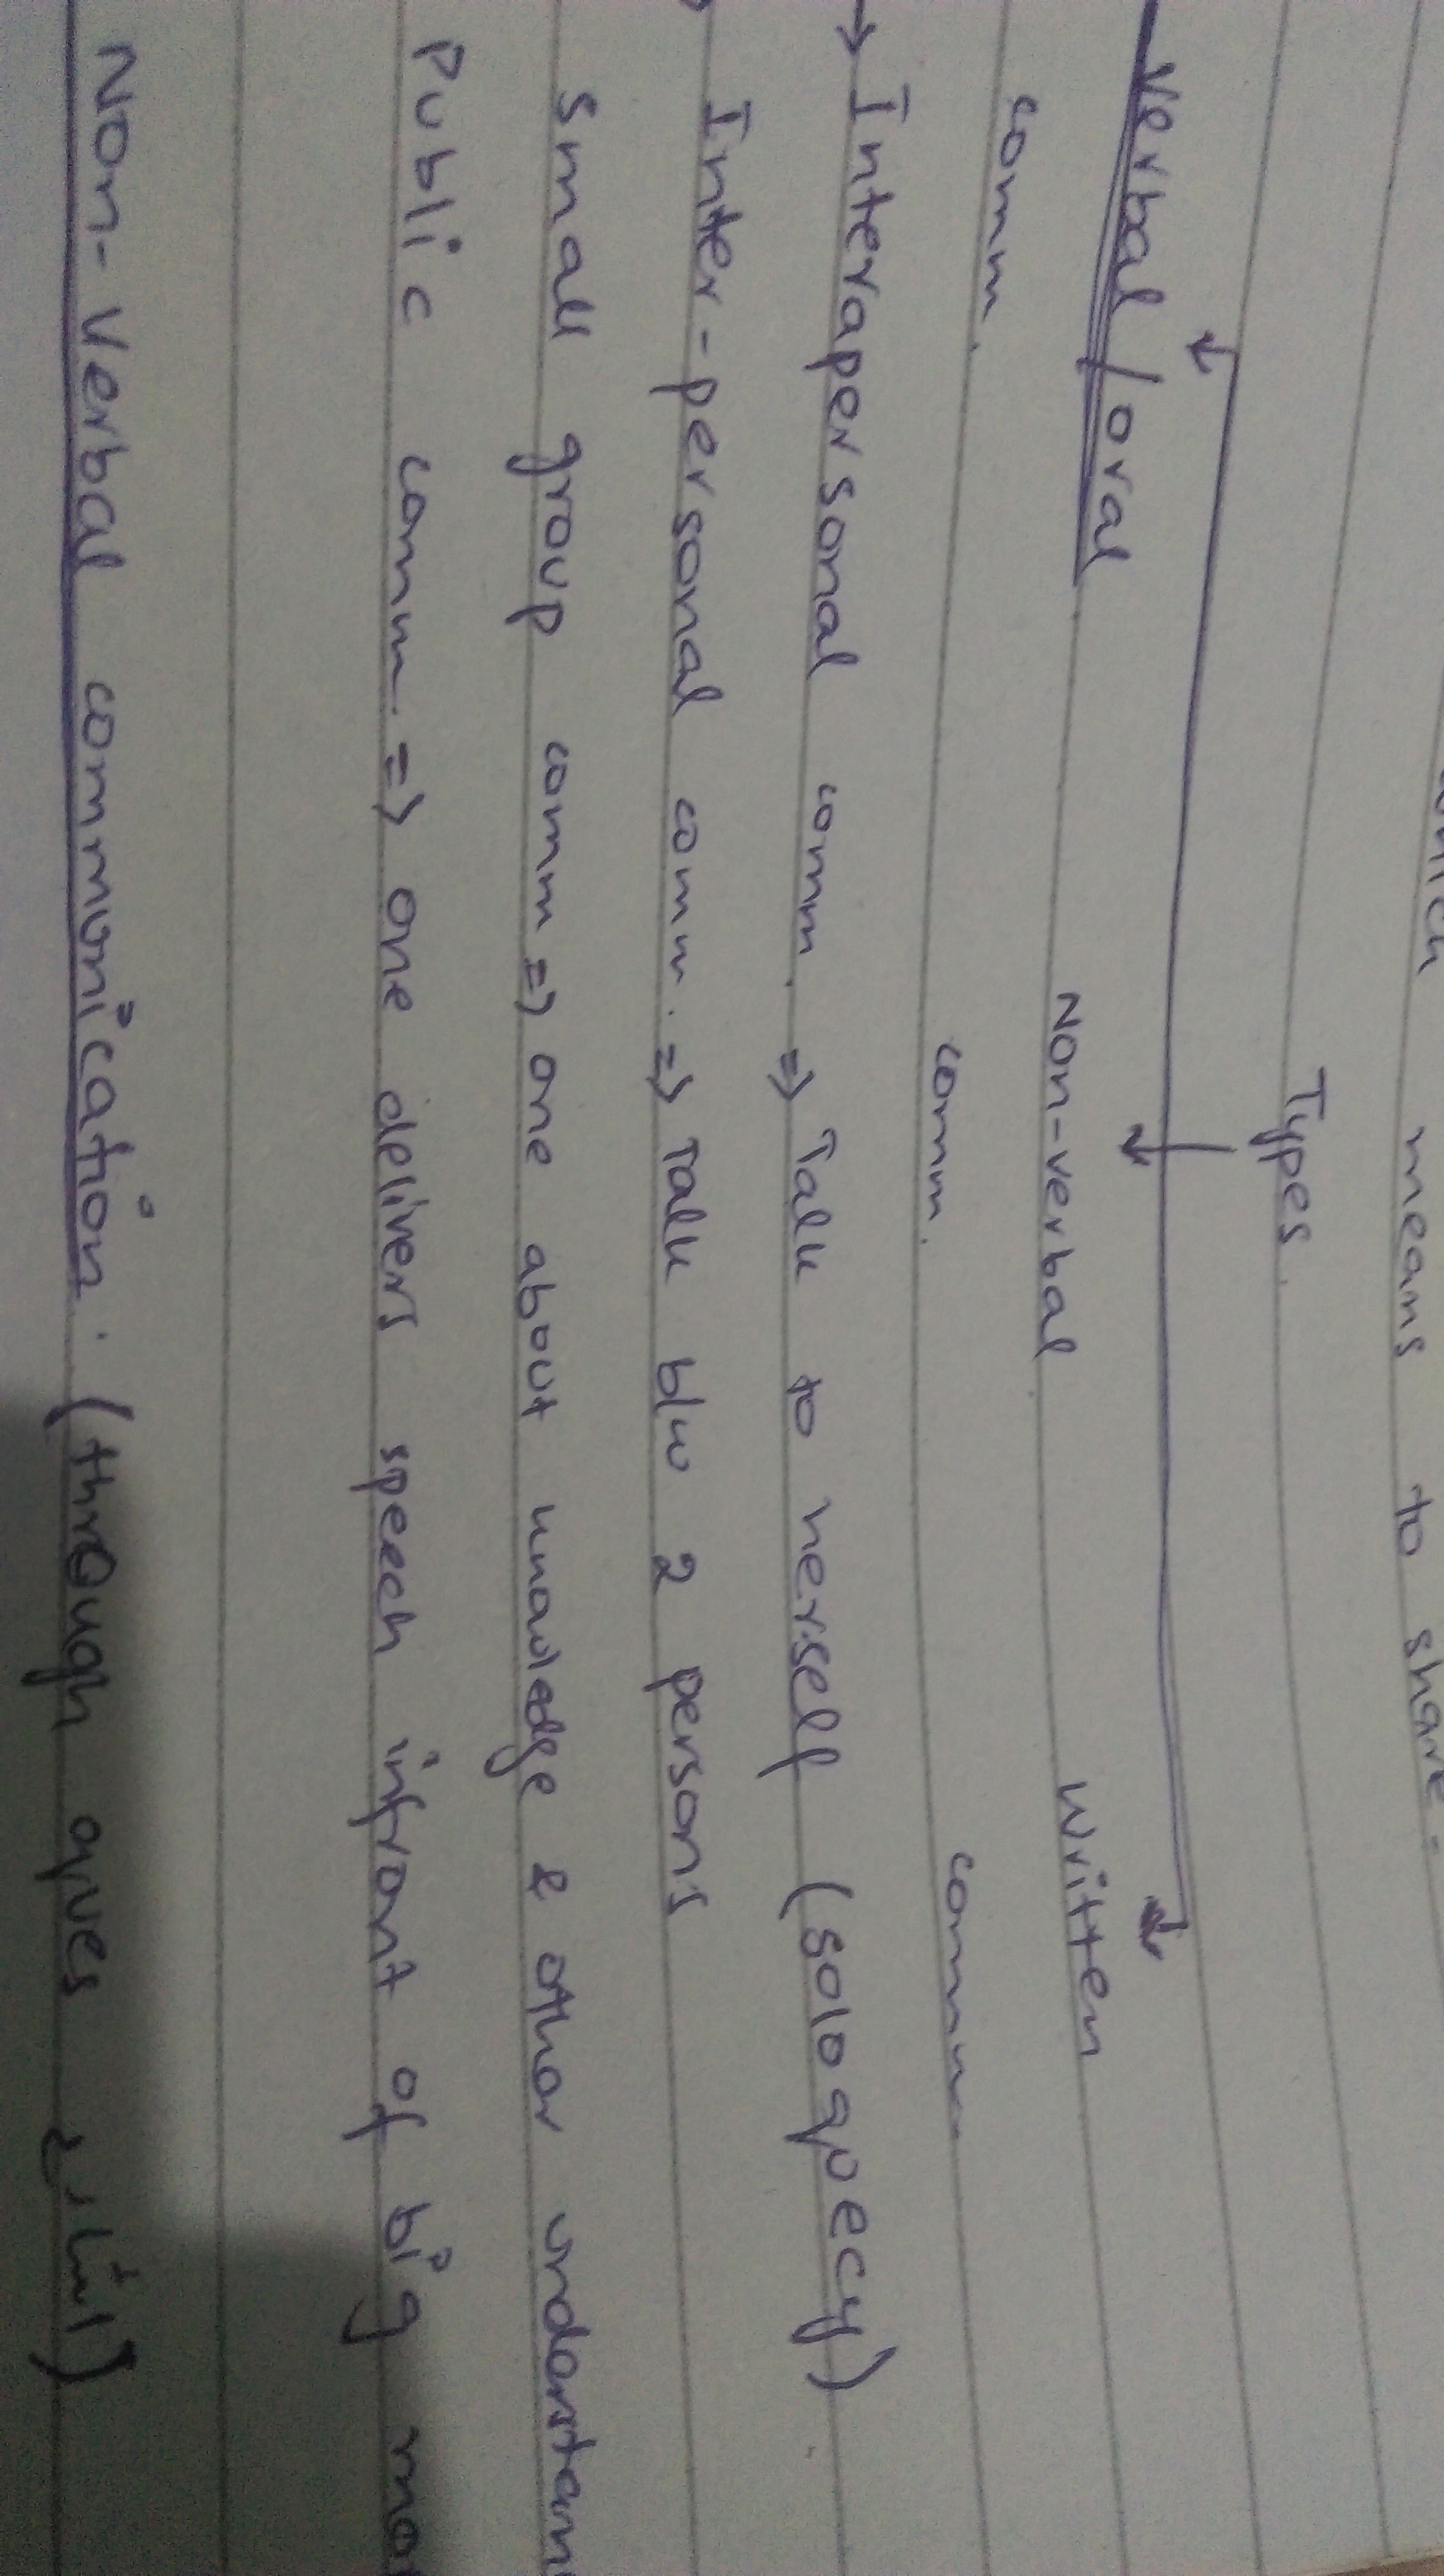 means to share.
Types.
Verbal/oral Non-verbal Written
comm. comm. comm
→ Interapersonal comm. => Talk to herself (soloquecy).
Inter-personal comm. => Talk b/w 2 persons
Small group comm => one about knowledge & other understan
Public comm. => one delivers speech infront of big
Non-Verbal communication. (through ayes